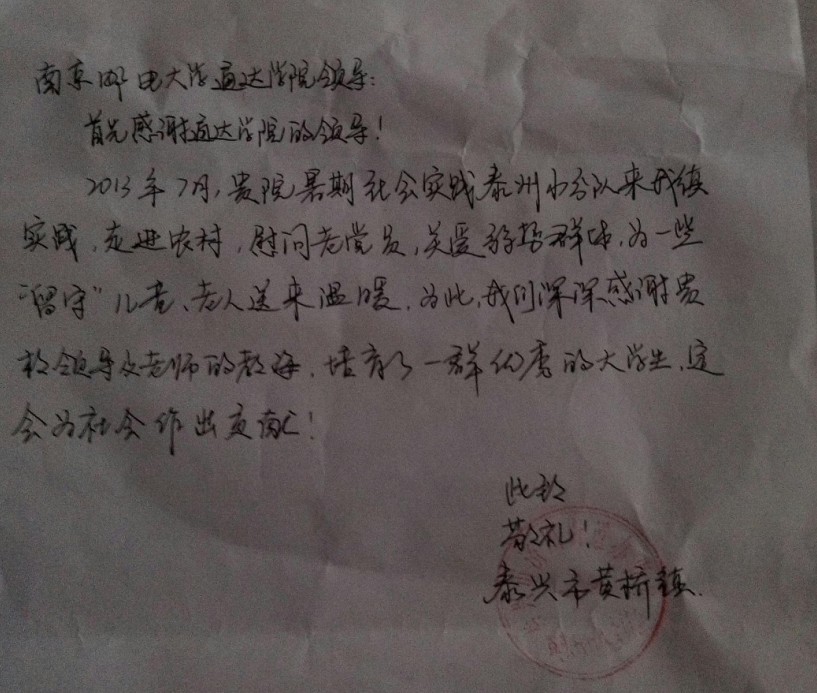 南京邮电大学通达学院领导:
首先感谢通达学院的领导!
2013年7月,贵院暑期社会实践泰州小分队来我镇
实践,走进农村,慰问老党员,关爱弱势群体,为一些
“留守”儿童、老人送来温暖,为此,我们深深感谢贵
校领导及老师的教诲,培育了一群优秀的大学生,定
会为社会作出贡献!
此致
敬礼!
泰兴市黄桥镇.